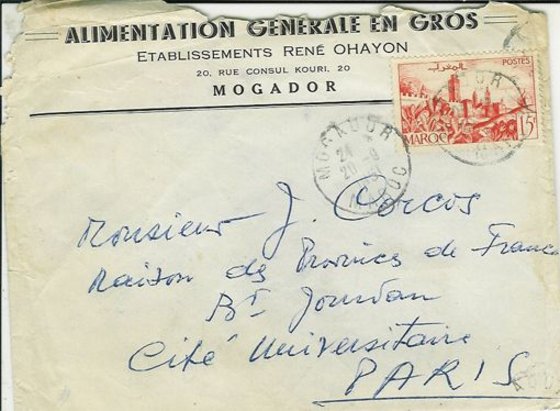 ALIMENTATION GENERALE EN GROS
ETABLISSEMENTS RENÉ OHAYON
20, RUE CONSUL KOURI, 20
MOGADOR
المغرب
POSTES
MAROC 15F
MOGADOR
MAROC
Monsieur J. Corcos
Maison des Provinces de France
Bd Jourdan
Cité Universitaire
PARIS